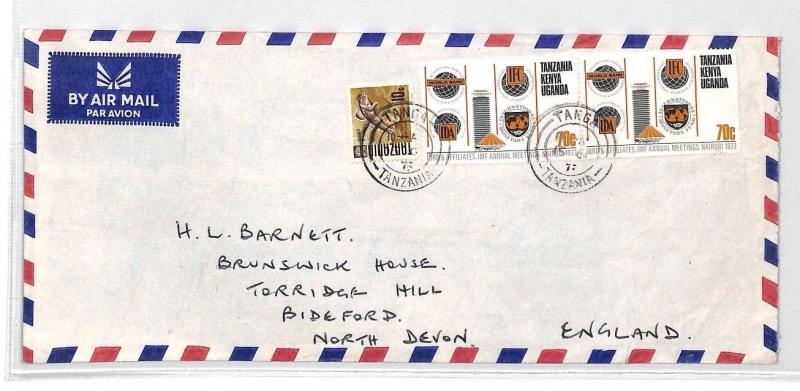 BY AIR MAIL
PAR AVION
10c
TANZANIA
WORLD BANK
IFC
IDA
INTERNATIONAL MONETARY FUND
TANZANIA
KENYA
UGANDA
70c
IBRD & AFFILIATES, IMF ANNUAL MEETINGS NAIROBI 1973
IFC
IDA
TANZANIA
KENYA
UGANDA
70c
IBRD & AFFILIATES, IMF ANNUAL MEETINGS NAIROBI 1973
TANGA
TANZANIA
TANGA
TANZANIA
H. L. BARNETT.
BRUNSWICK HOUSE.
TORRIDGE HILL
BIDEFORD.
NORTH DEVON. ENGLAND.